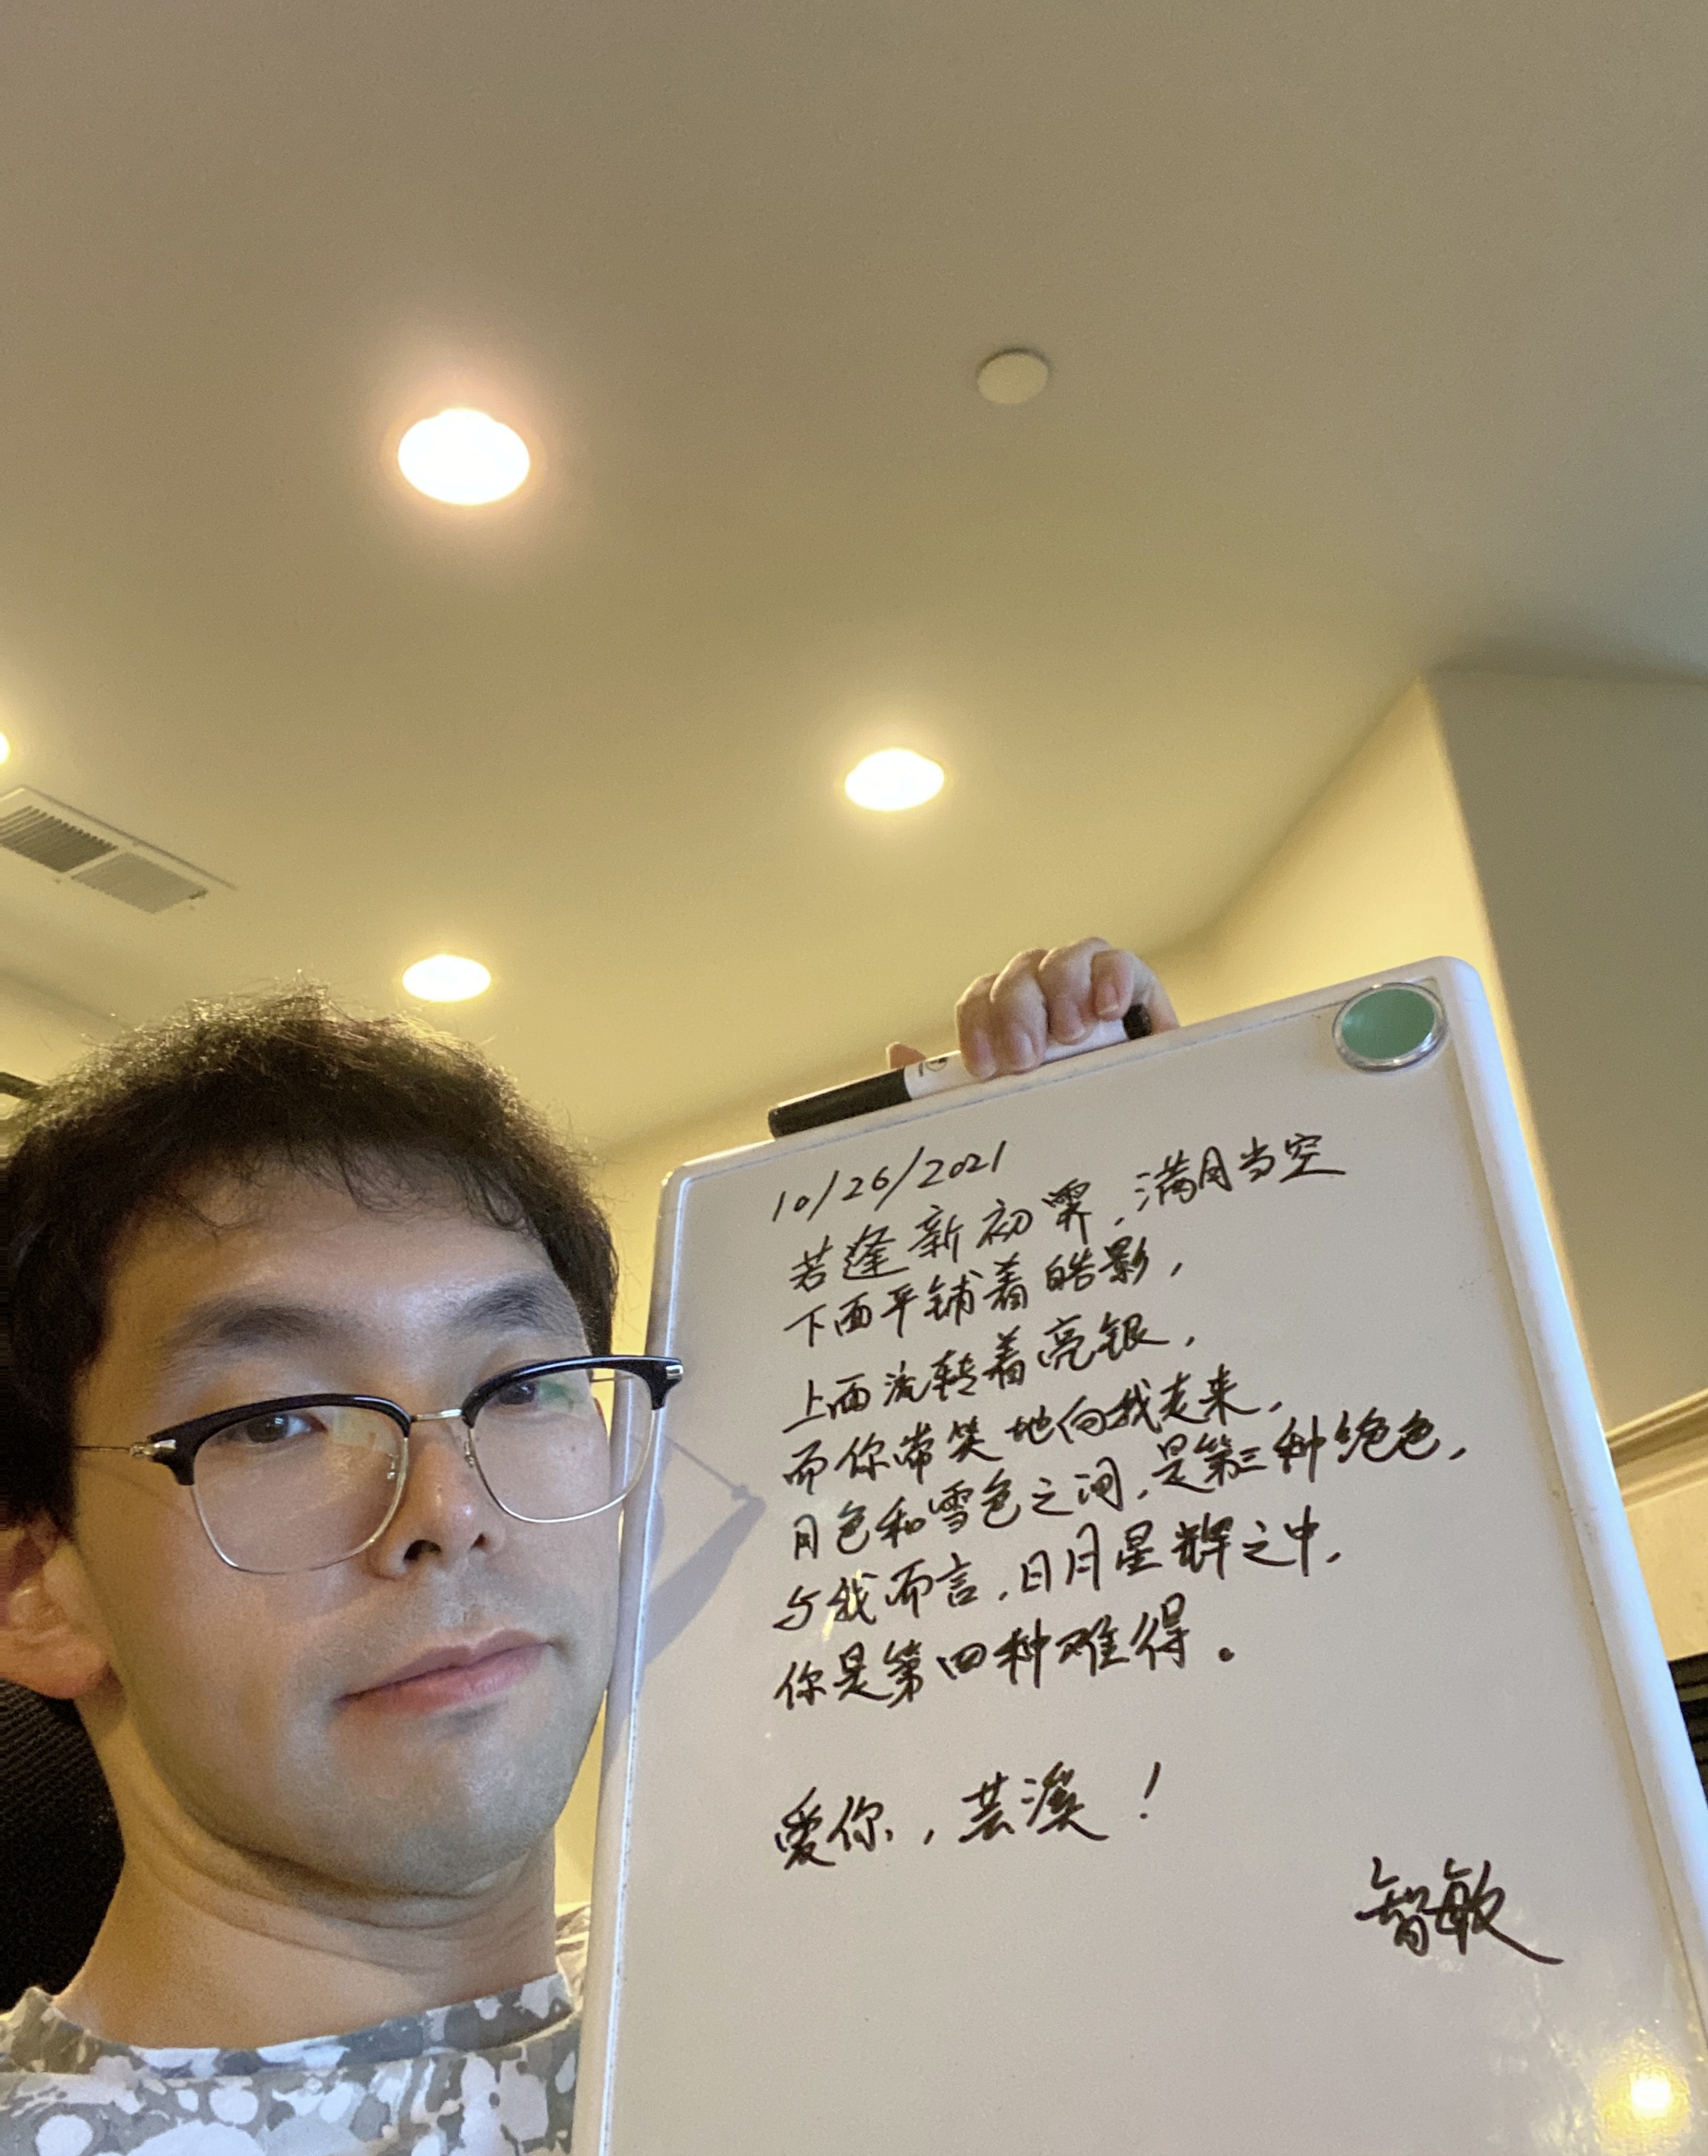 10/26/2021
若逢新初霁,满月当空
下面平铺着皓影,
上面流转着亮银,
而你带笑地向我走来,
月色和雪色之间,是第三种绝色,
与我而言,日月星辉之中,
你是第四种难得。
爱你,芸溪!
智敏